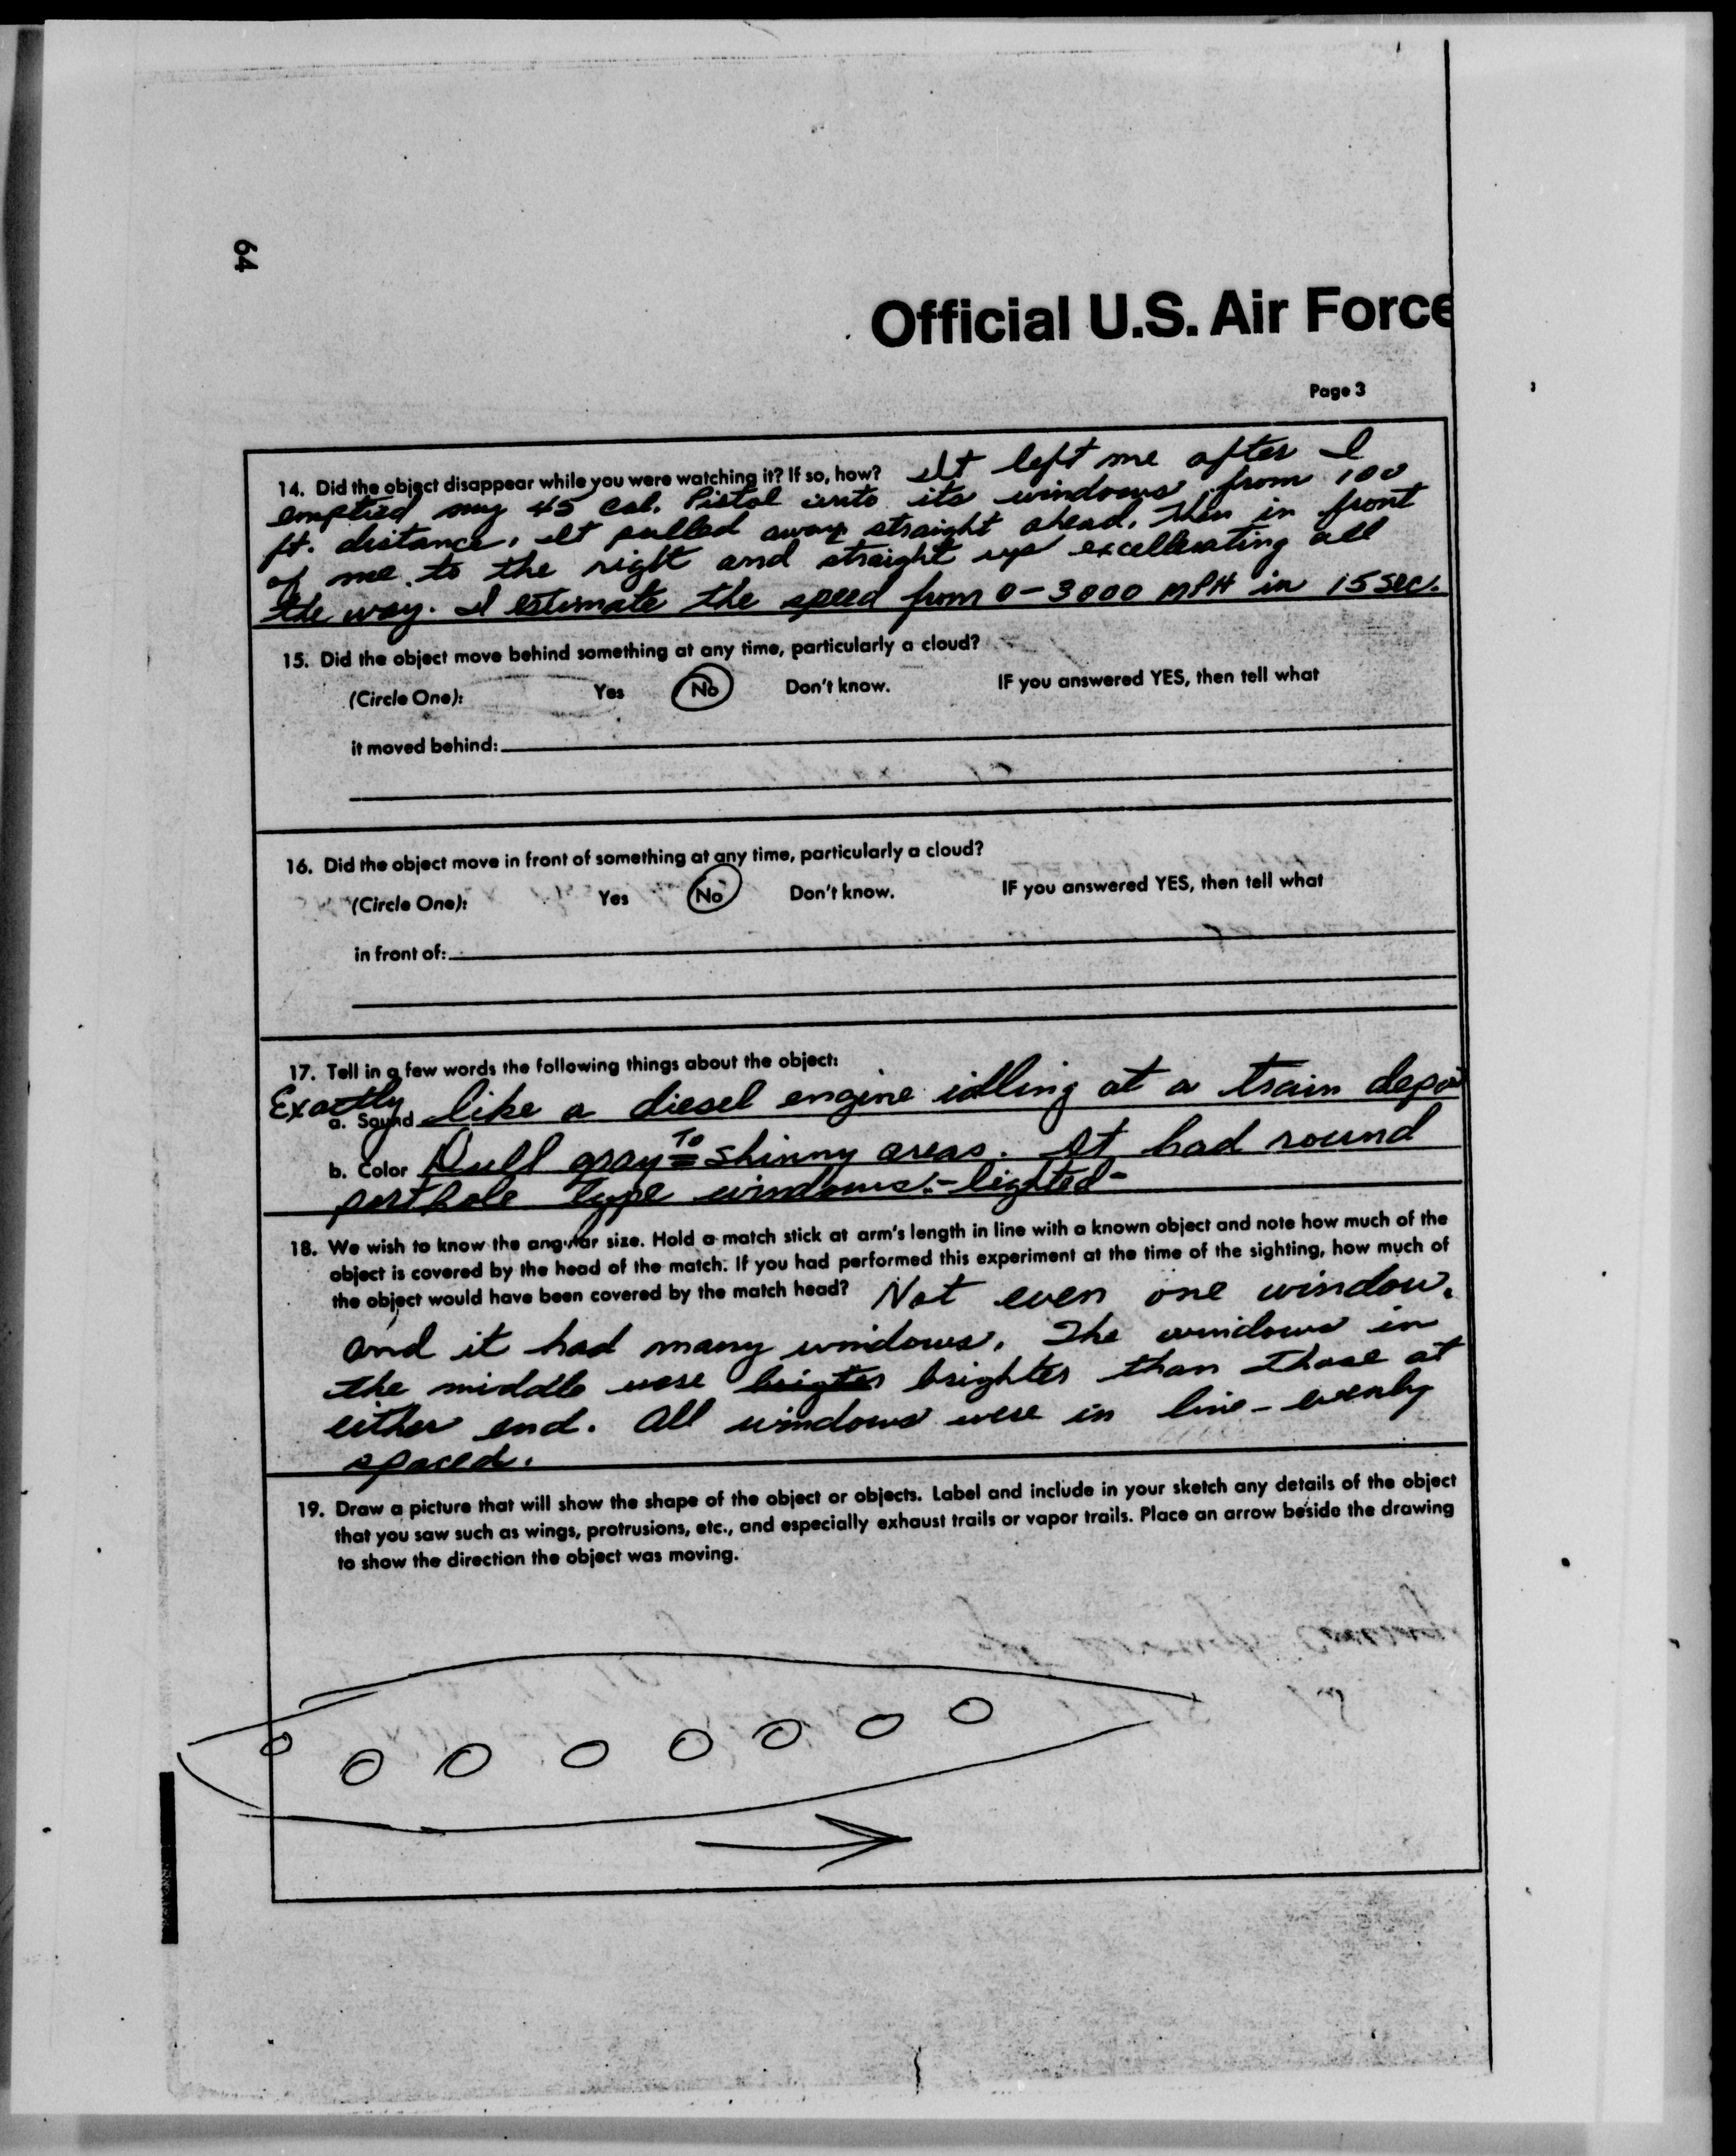 64
Official U.S. Air Force
Page 3
14. Did the object disappear while you were watching it? If so, how? It left me after I
emptied my 45 cal. Pistol into its windows from 100
ft. distance. It pulled away straight ahead. Then in front
of me. to the right and straight up excellerating all
the way. I estimate the speed from 0-3000 MPH in 15 sec.
15. Did the object move behind something at any time, particularly a cloud?
(Circle One): Yes No Don't know. IF you answered YES, then tell what
it moved behind:
16. Did the object move in front of something at any time, particularly a cloud?
(Circle One): Yes No Don't know. IF you answered YES, then tell what
in front of:
17. Tell in a few words the following things about the object:
Exactly
a. Sound like a diesel engine idling at a train depot
b. Color Dull gray To shinny areas. It had round
porthole Type windows - lighted -
18. We wish to know the angular size. Hold a match stick at arm's length in line with a known object and note how much of the
object is covered by the head of the match. If you had performed this experiment at the time of the sighting, how much of
the object would have been covered by the match head? Not even one window.
and it had many windows. The windows in
the middle were brigter brighter than those at
either end. All windows were in line - evenly
spaced.
19. Draw a picture that will show the shape of the object or objects. Label and include in your sketch any details of the object
that you saw such as wings, protrusions, etc., and especially exhaust trails or vapor trails. Place an arrow beside the drawing
to show the direction the object was moving.